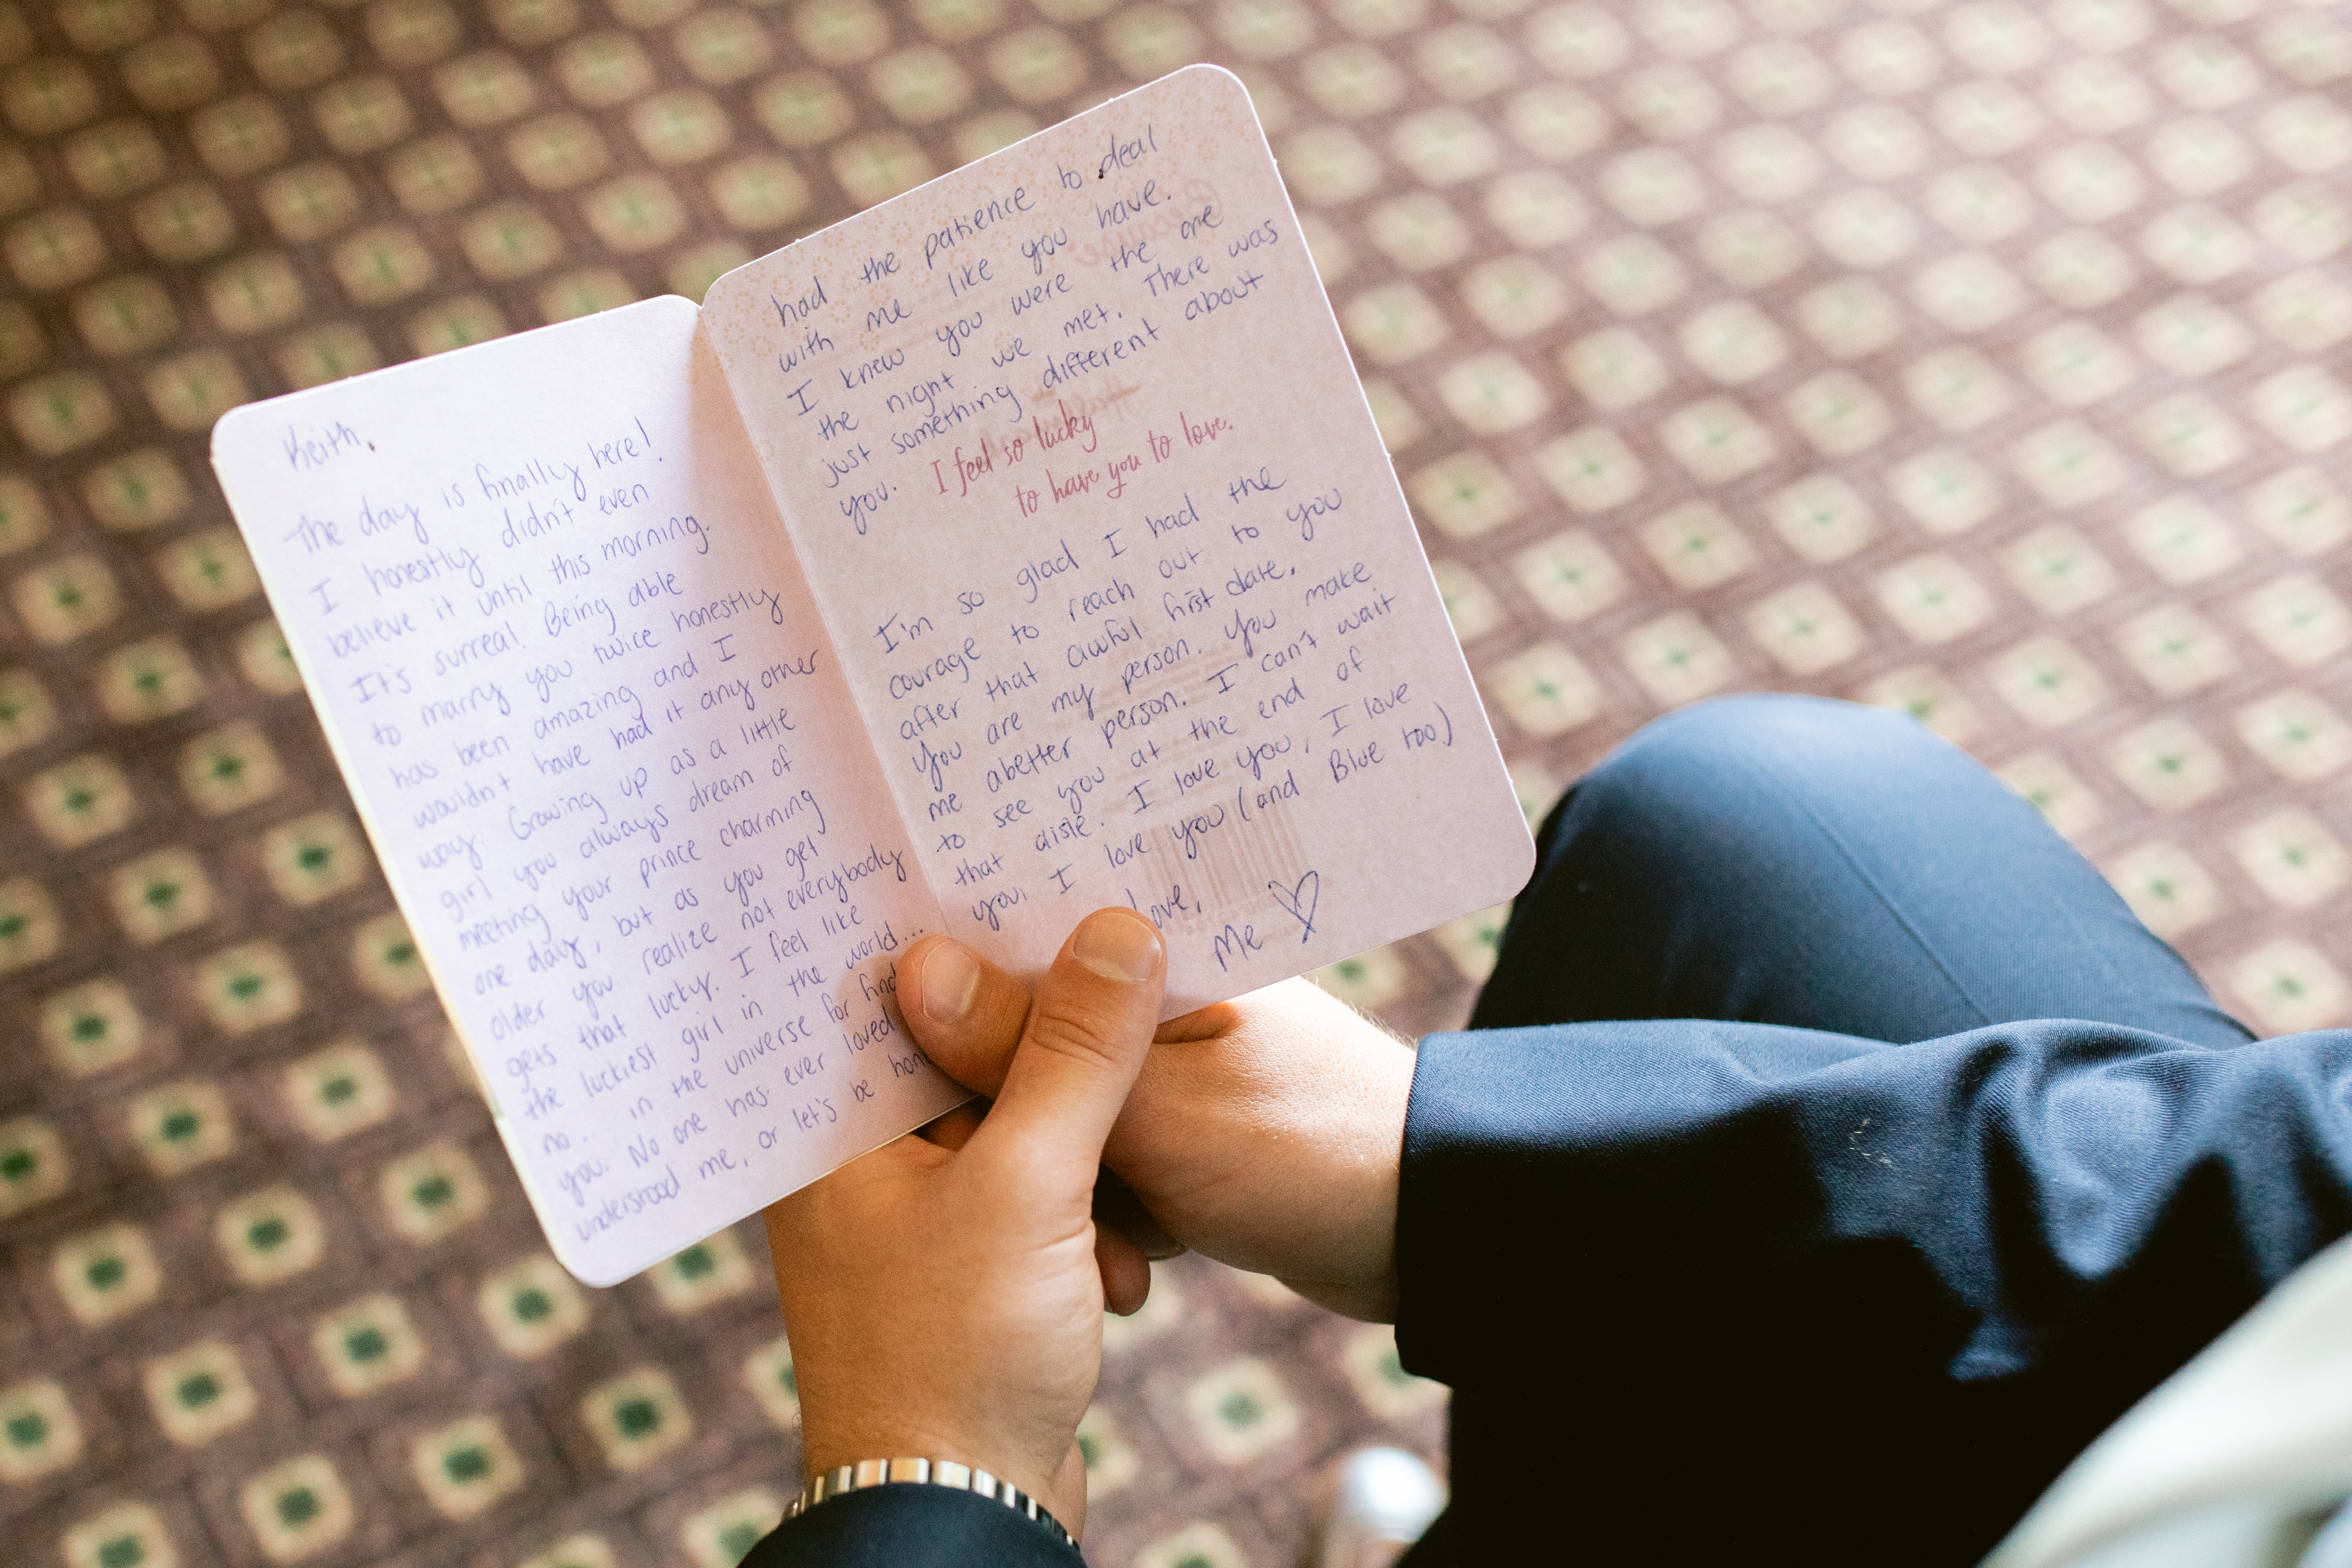 Keith,
The day is finally here!
I honestly didn't even
believe it until this morning.
It's surreal. Being able
to marry you twice honestly
has been amazing and I
wouldn't have had it any other
way. Growing up as a little
girl you always dream of
meeting your prince charming
one day, but as you get
older you realize not everybody
gets that lucky. I feel like
the luckiest girl in the world...
no.. in the universe for
you. No one has ever loved
understood me, or let's be
had the patience to deal
with me like you have.
I knew you were the one
the night we met. There was
just something different about
you.
I feel so lucky
to have you to love.
I'm so glad I had the
courage to reach out to you
after that awful first date.
You are my person. You make
me abetter person. I can't wait
to see you at the end of
that aisle. I love you, I love
you, I love you (and Blue too)
Love,
Me ♡